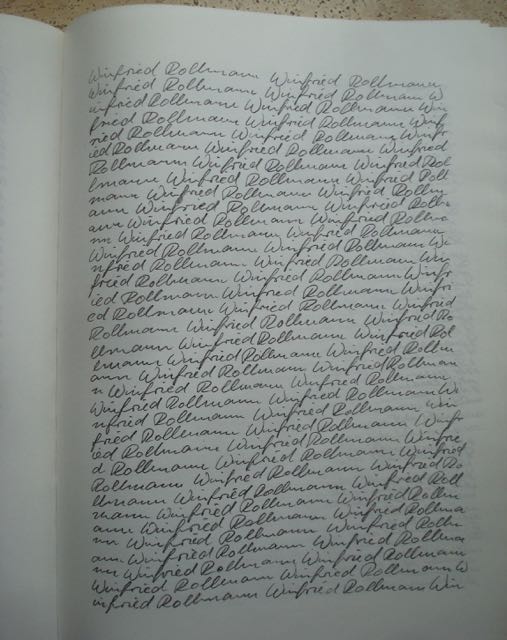 Winfried Rollmann Winfried Rollmann
Winfried Rollmann Winfried Rollmann W
infried Rollmann Winfried Rollmann Win
fried Rollmann Winfried Rollmann Winf
ried Rollmann Winfried Rollmann Winfr
ied Rollmann Winfried Rollmann Winfried
Rollmann Winfried Rollmann Winfried Rol
lmann Winfried Rollmann Winfried Roll
mann Winfried Rollmann Winfried Rollm
ann Winfried Rollmann Winfried Rollm
ann Winfried Rollmann Winfried Rollma
nn Winfried Rollmann Winfried Rollmann
Winfried Rollmann Winfried Rollmann Wi
nfried Rollmann Winfried Rollmann Win
fried Rollmann Winfried Rollmann Winfr
ied Rollmann Winfried Rollmann Winfri
ed Rollmann Winfried Rollmann Winfried
Rollmann Winfried Rollmann Winfried Ro
llmann Winfried Rollmann Winfried Rol
lmann Winfried Rollmann Winfried Rollm
ann Winfried Rollmann Winfried Rollman
n Winfried Rollmann Winfried Rollmann
Winfried Rollmann Winfried Rollmann Wi
nfried Rollmann Winfried Rollmann Win
fried Rollmann Winfried Rollmann Winfr
ied Rollmann Winfried Rollmann Winfrie
d Rollmann Winfried Rollmann Winfried
Rollmann Winfried Rollmann Winfried Ro
llmann Winfried Rollmann Winfried Roll
mann Winfried Rollmann Winfried Rollm
ann Winfried Rollmann Winfried Rollma
nn Winfried Rollmann Winfried Rollm
ann Winfried Rollmann Winfried Rollma
nn Winfried Rollmann Winfried Rollmann W
Winfried Rollmann Winfried Rollmann W
infried Rollmann Winfried Rollmann Win